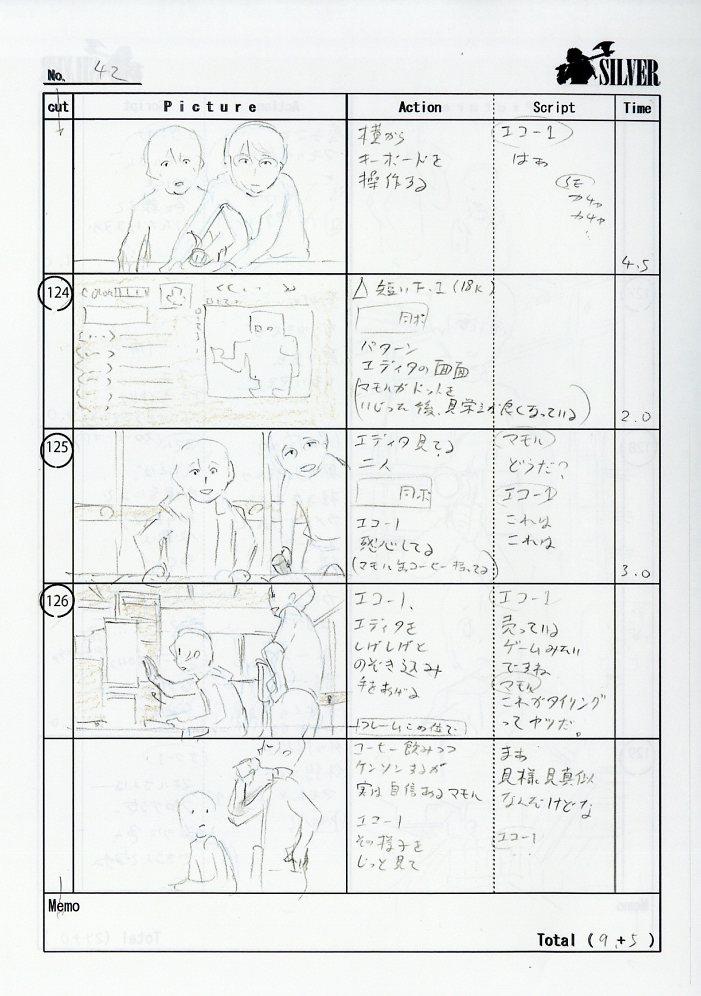 No. 42
SILVER
cut Picture Action Script Time
横から
キーボードを
操作する
エコー1
はぁ
SE
カチャ
カチャ
4.5
124
△ 短い F.I (18K)
同ポ
パターン
エディタの画面
(マモルがドットを
いじった後、見栄えが良くなっている)
2.0
125
エディタ見てる
二人
同ポ
エコー1
感心してる
(マモル缶コーヒー持ってる)
マモル
どうだ?
エコー1
これは
これは
3.0
126
エコー1、
エディタを
しげしげと
のぞき込み
手をあげる
フレームこの位で
エコー1
売っている
ゲームみたい
ですね
マモル
これがタイリング
ってヤツだ。
コーヒー飲みつつ
ケンソンするが
実は自信あるマモル
エコー1
その様子を
じっと見て
まぁ
見様見真似
なんだけどな
エコー1
Memo
Total (9.+5)